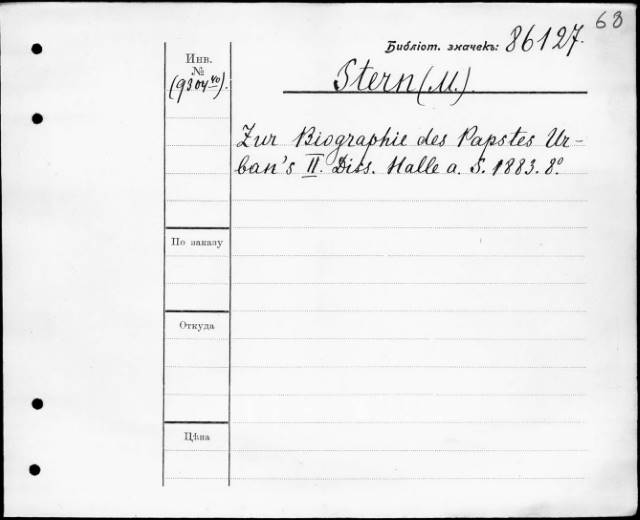 63
Библіот. значекъ: 86127.
Инв.
№
(9304⁴⁰).
Stern (M.)
Zur Biographie des Papstes Ur-
ban's II. Diss. Halle a. S. 1883. 8º
По заказу
Откуда
Цѣна